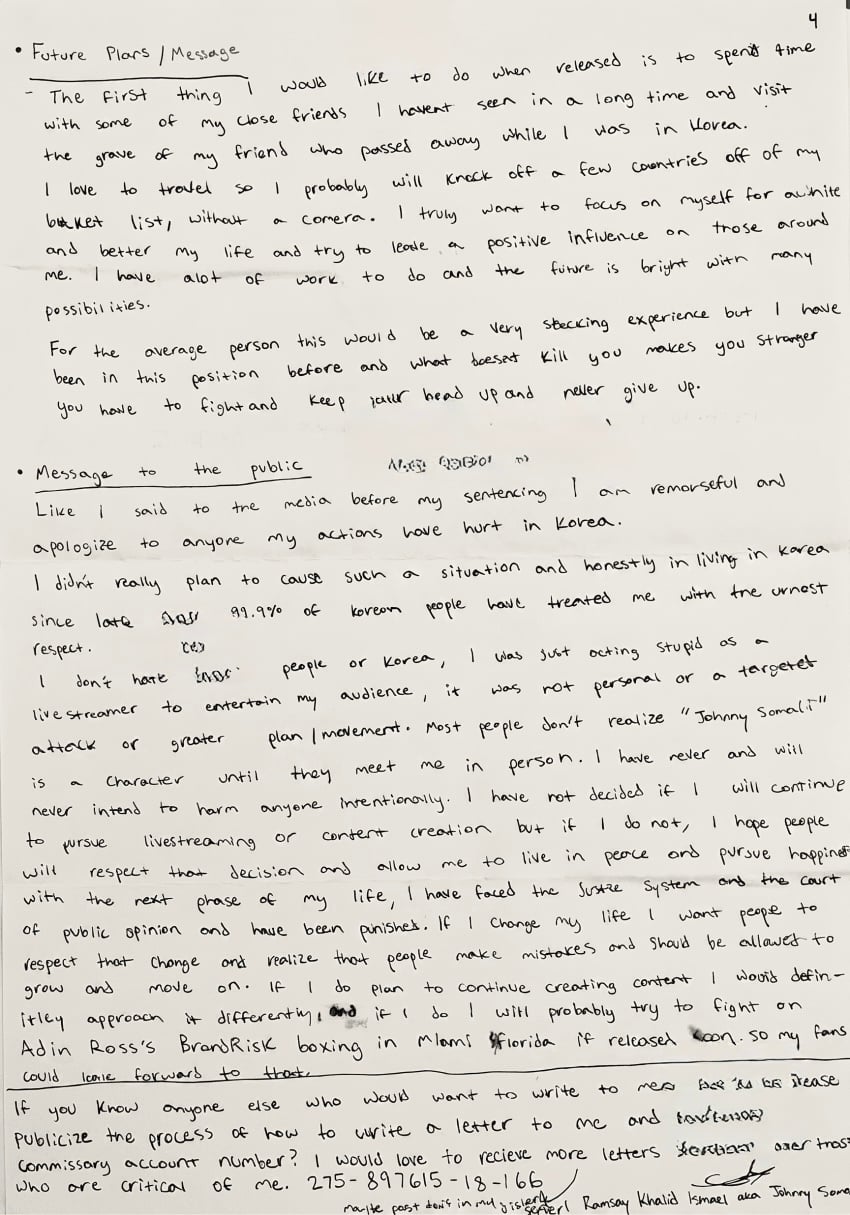 4
• Future Plans / Message
- The first thing I would like to do when released is to spend time
with some of my close friends I havent seen in a long time and visit
the grave of my friend who passed away while I was in Korea.
I love to travel so I probably will knock off a few countries off of my
bucket list, without a camera. I truly want to focus on myself for awhite
and better my life and try to leave a positive influence on those around
me. I have alot of work to do and the future is bright with many
possibilities.
For the average person this would be a very shocking experience but I have
been in this position before and what doesent kill you makes you stronger
you have to fight and keep your head up and never give up.
• Message to the public
Like I said to the media before my sentencing I am remorseful and
apologize to anyone my actions have hurt in Korea.
I didn't really plan to cause such a situation and honestly in living in Korea
since late 99.9% of korean people have treated me with the utmost
respect.
I don't hate people or Korea, I was just acting stupid as a
livestreamer to entertain my audience, it was not personal or a targetet
attack or greater plan/movement. Most people don't realize "Johnny Somali"
is a character until they meet me in person. I have never and will
never intend to harm anyone intentionally. I have not decided if I will continue
to pursue livestreaming or content creation but if I do not, I hope people
will respect that decision and allow me to live in peace and pursue happines
with the next phase of my life, I have faced the Justice System and the court
of public opinion and have been punished. If I change my life I want people to
respect that change and realize that people make mistakes and should be allowed to
grow and move on. If I do plan to continue creating content I would defin-
itley approach it differently, and if I do I will probably try to fight on
Adin Ross's BrandRisk boxing in Miami Florida if released soon. so my fans
could look forward to that.
If you know anyone else who would want to write to me
publicize the process of how to write a letter to me and
commissary account number? I would love to recieve more letters
who are critical of me. 275-897615-18-166
maybe post this in my
server! Ramsay Khalid Ismael aka Johnny Soma